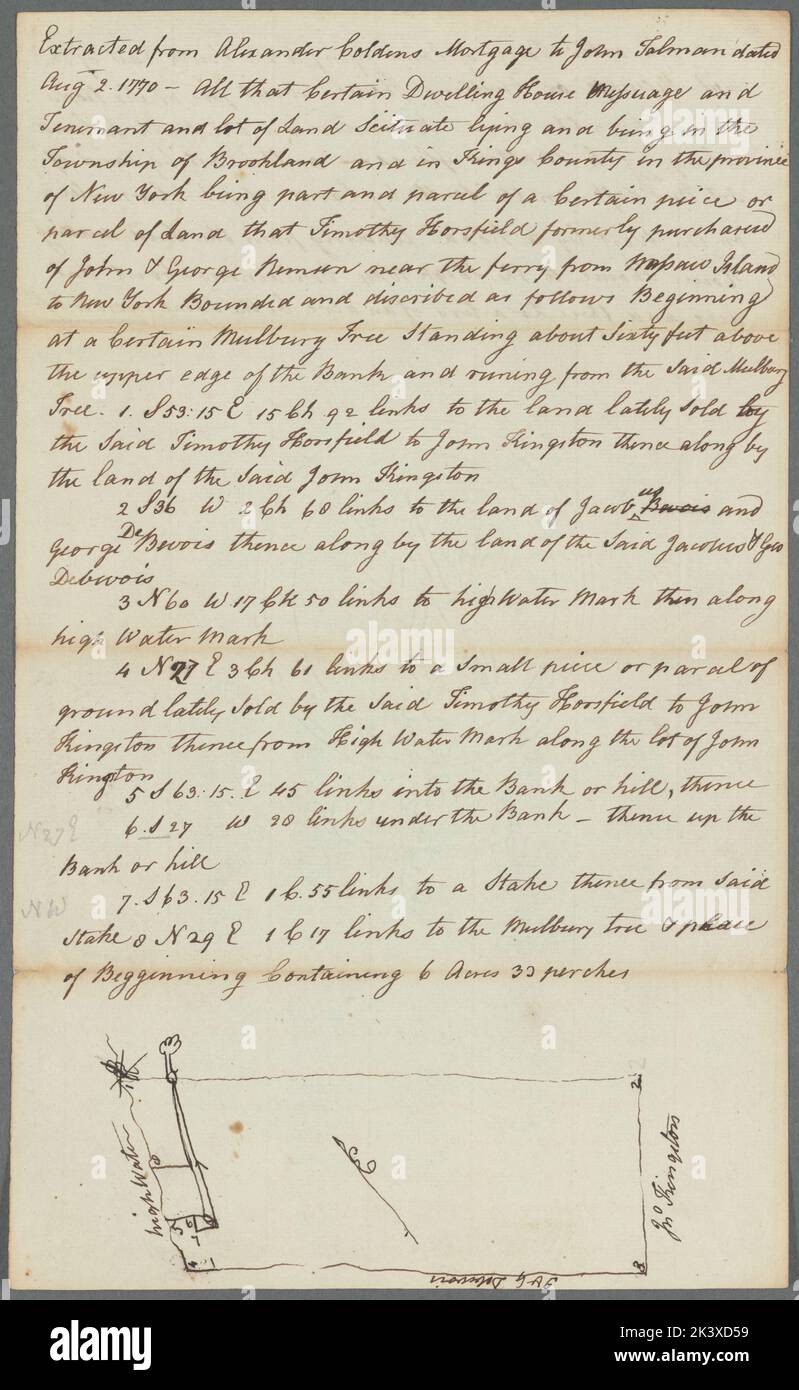 Extracted from Alexander Coldens Mortgage to John Talman dated
Augt 2. 1770 – All that Certain Dwelling House Messuage and
Tenemant and lot of Land Scituate lying and being in the
Township of Brookland and in Kings County in the province
of New York being part and parcel of a Certain piece or
parcel of Land that Timothy Horsfield formerly purchased
of John & George Remsen near the ferry from Nassaw Island
to New York Bounded and discribed as follows Beginning
at a Certain Mulbury Tree Standing about Sixty feet above
the upper edge of the Bank and runing from the Said Mulbury
Tree. 1. S53:15 E 15 Ch 92 links to the land lately Sold by
the Said Timothy Horsfield to John Kingston thence along by
the land of the Said John Kingston
2 S36 W 2 Ch 68 links to the land of Jacobus Bevois and
George DeBevois thence along by the land of the Said Jacobus & Geo
Debevois
3 N60 W 17 Ch 50 links to high Water Mark then along
high Water Mark
4 N27 E 3 Ch 61 links to a Small piece or parcel of
ground lately Sold by the Said Timothy Horsfield to John
Kingston thence from High Water Mark along the lot of John
Kington
5 S 63:15. E 45 links into the Bank or hill, thence
6. S 27 W 28 links under the Bank – thence up the
N27E
Bank or hill
7. S 63.15 E 1 C. 55 links to a Stake thence from Said
NW
Stake 8 N 29 E 1 C 17 links to the Mulbury tree & place
of Begginning Containing 6 Acres 33 perches
high Water
5
6
7
4
1
2
3
Jno Kingston
J & G Debevois
alamy
Image ID: 2K3XD59
www.alamy.com